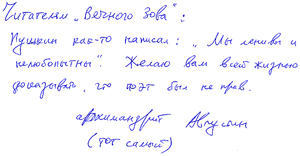 Читателям „Вечного Зова":
Пушкин как-то написал: „Мы ленивы и
нелюбопытны". Желаю вам всей жизнью
доказывать, что поэт был не прав.
архимандрит Августин
(тот самый)